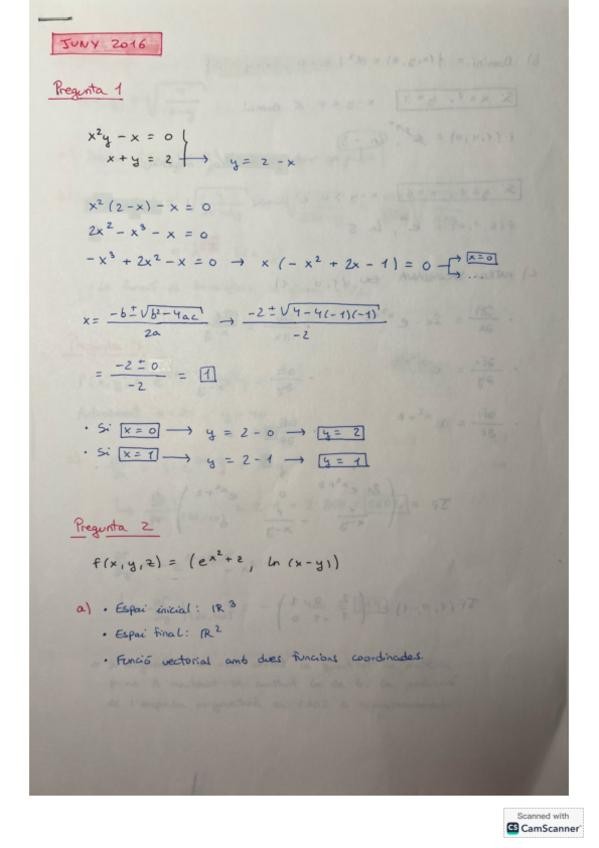 JUNY 2016
Pregunta 1
x²y - x = 0
x + y = 2 → y = 2 - x
x² (2-x) - x = 0
2x² - x³ - x = 0
-x³ + 2x² - x = 0 → x (-x² + 2x - 1) = 0 → x=0
→ ...
x = (-b ± √(b² - 4ac)) / 2a → (-2 ± √(4 - 4(-1)(-1))) / -2
= (-2 ± 0) / -2 = 1
• Si x=0 → y = 2-0 → y = 2
• Si x=1 → y = 2-1 → y = 1
Pregunta 2
f(x, y, z) = (e^(x²+z), ln (x-y))
a) • Espai inicial: ℝ³
• Espai final: ℝ²
• Funció vectorial amb dues funcions coordinades.
Scanned with
CS CamScanner